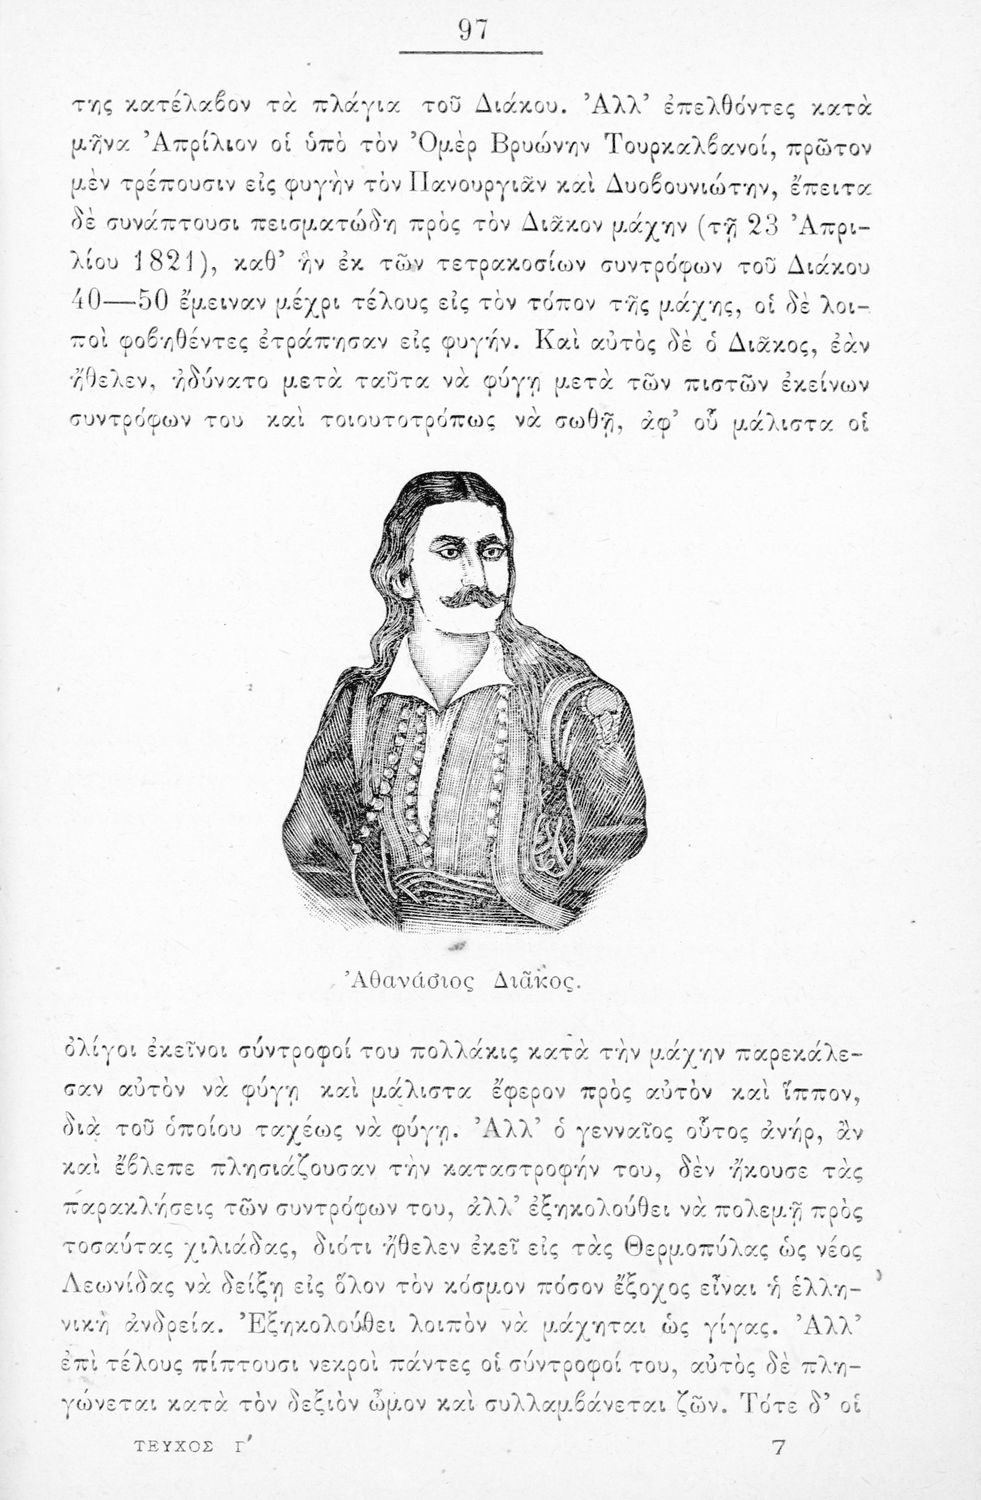 97
της κατέλαβον τὰ πλάγια τοῦ Διάκου. Ἀλλ’ ἐπελθόντες κατὰ
μῆνα Ἀπρίλιον οἱ ὑπὸ τὸν Ὀμὲρ Βρυώνην Τουρκαλβανοί, πρῶτον
μὲν τρέπουσιν εἰς φυγὴν τὸν Πανουργιᾶν καὶ Δυοβουνιώτην, ἔπειτα
δὲ συνάπτουσι πεισματώδη πρὸς τὸν Διᾶκον μάχην (τῇ 23 Ἀπρι-
λίου 1821), καθ’ ἣν ἐκ τῶν τετρακοσίων συντρόφων τοῦ Διάκου
40—50 ἔμειναν μέχρι τέλους εἰς τὸν τόπον τῆς μάχης, οἱ δὲ λοι-
ποὶ φοβηθέντες ἐτράπησαν εἰς φυγήν. Καὶ αὐτὸς δὲ ὁ Διᾶκος, ἐὰν
ἤθελεν, ἠδύνατο μετὰ ταῦτα νὰ φύγῃ μετὰ τῶν πιστῶν ἐκείνων
συντρόφων του καὶ τοιουτοτρόπως νὰ σωθῇ, ἀφ’ οὗ μάλιστα οἱ
Ἀθανάσιος Διᾶκος.
ὀλίγοι ἐκεῖνοι σύντροφοί του πολλάκις κατὰ τὴν μάχην παρεκάλε-
σαν αὐτὸν νὰ φύγῃ καὶ μάλιστα ἔφερον πρὸς αὐτὸν καὶ ἵππον,
διὰ τοῦ ὁποίου ταχέως νὰ φύγῃ. Ἀλλ’ ὁ γενναῖος οὗτος ἀνήρ, ἂν
καὶ ἔβλεπε πλησιάζουσαν τὴν καταστροφήν του, δὲν ἤκουσε τὰς
παρακλήσεις τῶν συντρόφων του, ἀλλ’ ἐξηκολούθει νὰ πολεμῇ πρὸς
τοσαύτας χιλιάδας, διότι ἤθελεν ἐκεῖ εἰς τὰς Θερμοπύλας ὡς νέος
Λεωνίδας νὰ δείξῃ εἰς ὅλον τὸν κόσμον πόσον ἔξοχος εἶναι ἡ ἑλλη-
νικὴ ἀνδρεία. Ἐξηκολούθει λοιπὸν νὰ μάχηται ὡς γίγας. Ἀλλ’
ἐπὶ τέλους πίπτουσι νεκροὶ πάντες οἱ σύντροφοί του, αὐτὸς δὲ πλη-
γώνεται κατὰ τὸν δεξιὸν ὦμον καὶ συλλαμβάνεται ζῶν. Τότε δ’ οἱ
ΤΕΥΧΟΣ Γ′ 7